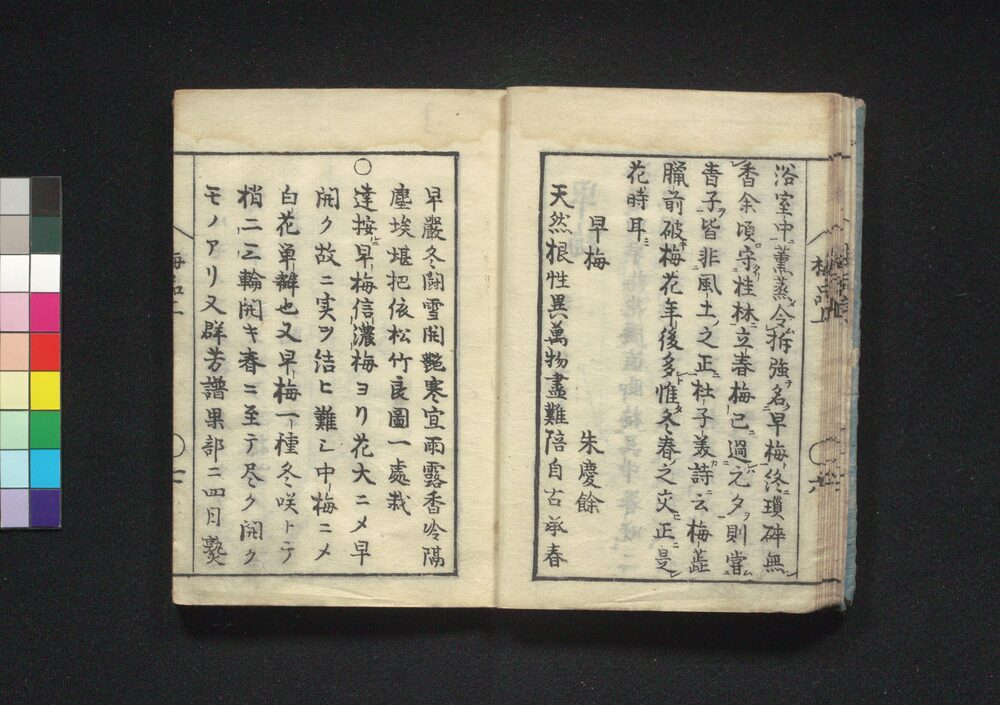 浴室中薫蒸令拆強名早梅終瑣碎無
香余頃守桂林立春梅已過元夕則嘗
青子皆非風土之正杜子美詩云梅蕋
臘前破梅花年後多惟冬春之交正是
花時耳
早梅 朱慶餘
天然根性異萬物盡難陪自古承春
早嚴冬鬪雪開艶寒宜雨露香冷隔
塵埃堪把依松竹良圖一處栽
〇達按早梅信濃梅ヨリ花大ニメ早
開ク故ニ実ヲ結ヒ難シ中梅ニメ
白花單瓣也又早梅一種冬咲トテ
梢二三輪開キ春ニ至テ尽ク開ク
モノアリ又群芳譜果部ニ四月熟
梅品上
〇六
〇七